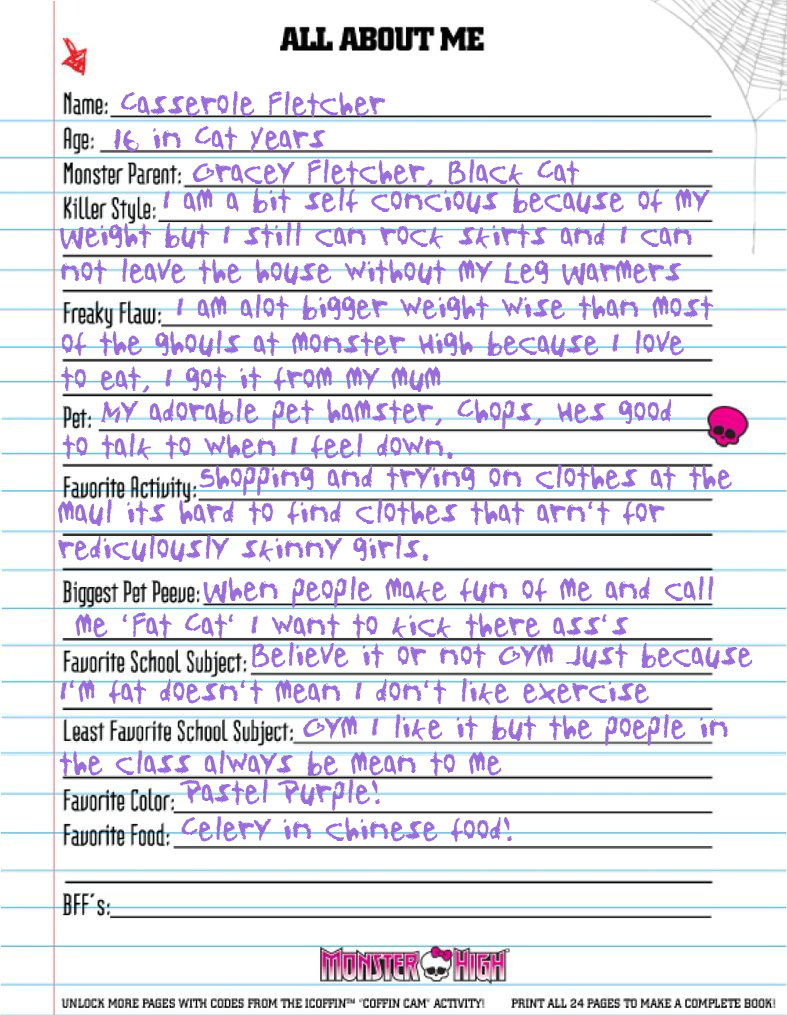 ALL ABOUT ME
Name: Casserole Fletcher
Age: 16 in Cat years
Monster Parent: Gracey Fletcher, Black Cat
Killer Style: I am a bit self concious because of my
weight but I still can rock skirts and I can
not leave the house without my Leg Warmers
Freaky Flaw: I am alot bigger weight wise than most
of the ghouls at Monster High because I love
to eat, I got it from my mum
Pet: My adorable pet hamster, Chops, Hes good
to talk to when I feel down.
Favorite Activity: Shopping and trying on clothes at the
Maul its hard to find clothes that arn't for
rediculously skinny girls.
Biggest Pet Peeve: When people make fun of me and call
me 'Fat Cat' I want to kick there ass's
Favorite School Subject: Believe it or not GYM Just because
I'm fat doesn't mean I don't like exercise
Least Favorite School Subject: GYM I like it but the poeple in
the class always be mean to me
Favorite Color: Pastel Purple!
Favorite Food: Celery in chinese food!
BFF's:
MONSTER HIGH
UNLOCK MORE PAGES WITH CODES FROM THE ICOFFIN™ "COFFIN CAM" ACTIVITY! PRINT ALL 24 PAGES TO MAKE A COMPLETE BOOK!